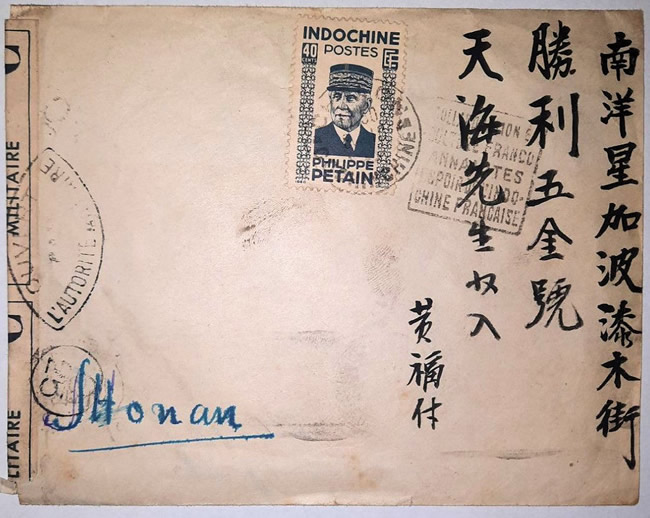 南洋星加波漆木街
勝利五金號
天海先生收入
黄福付
INDOCHINE
POSTES
40
CENTS
PHILIPPE
PETAIN
FRANCO
CHINE FRANCAISE
MILITAIRE
LITAIRE
L'AUTORITE
SHonan